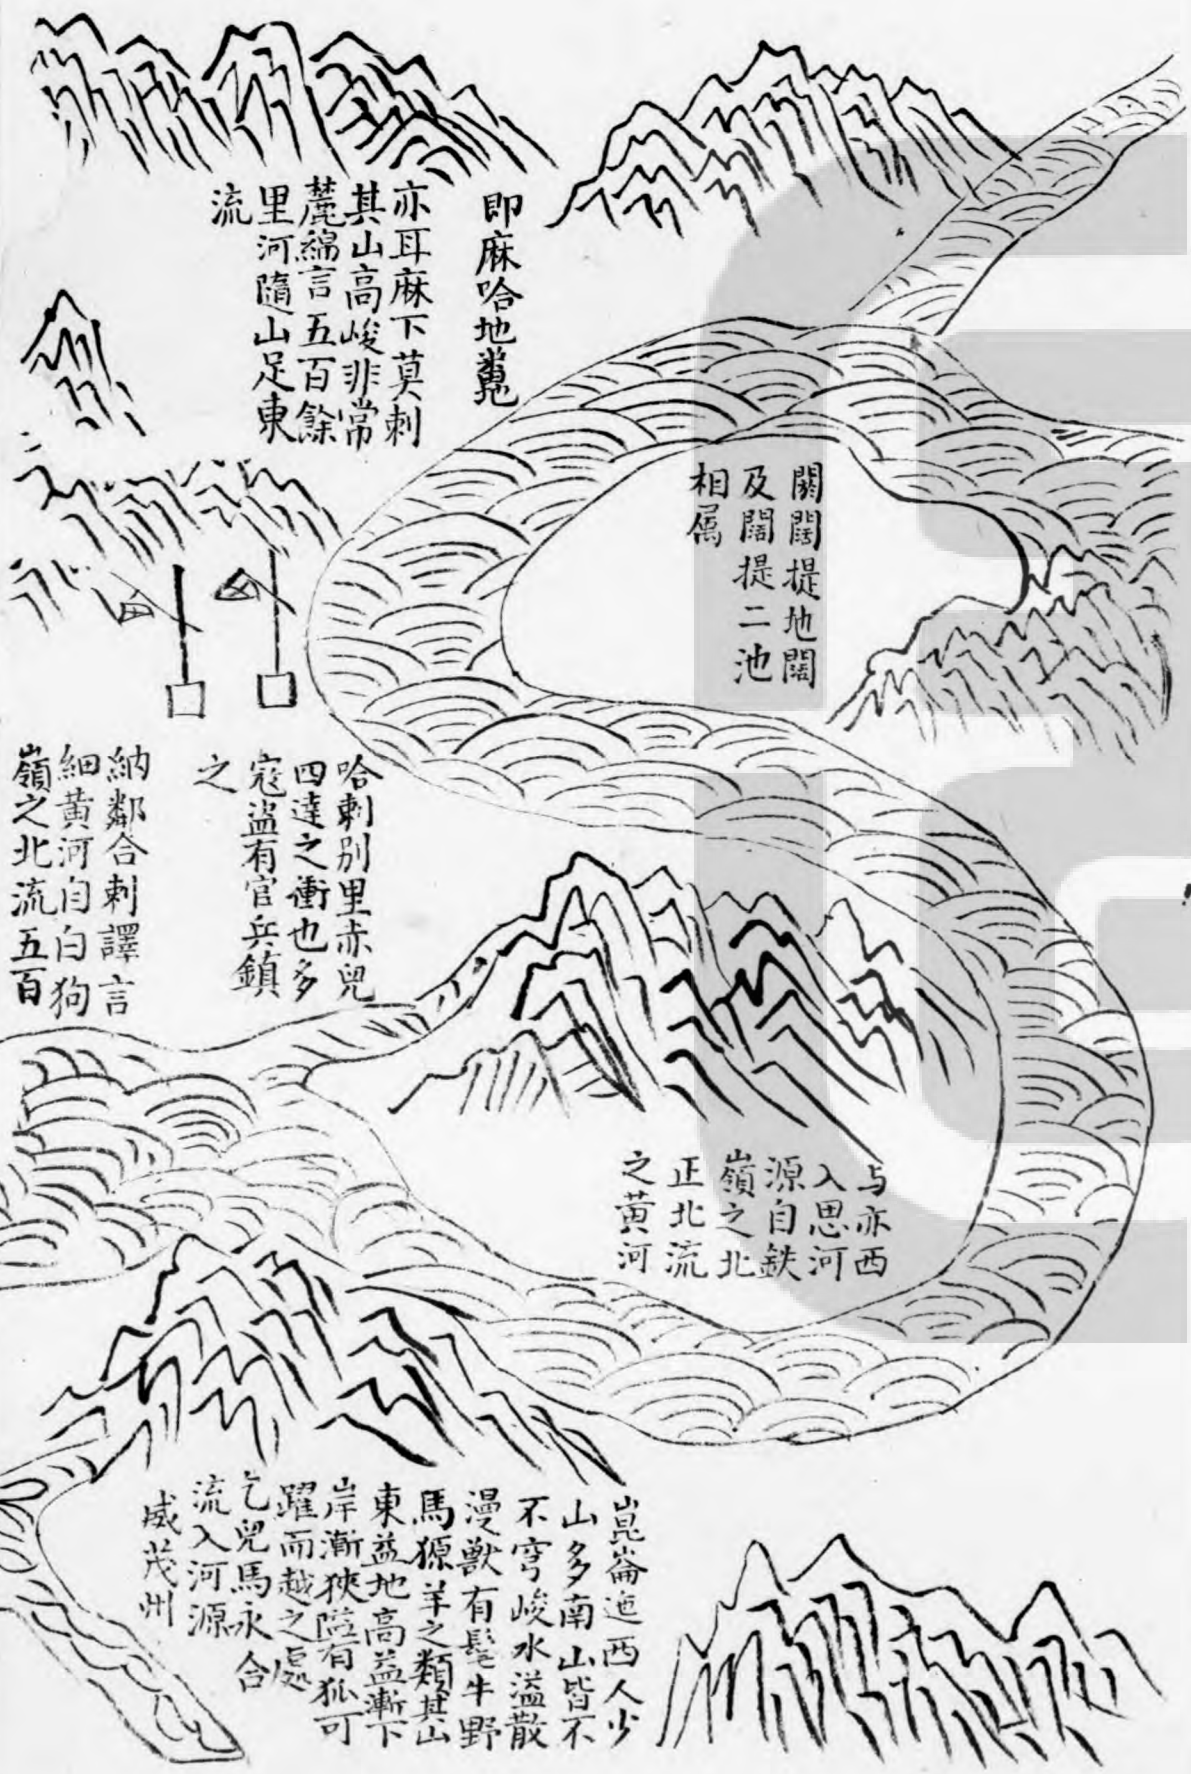 即麻哈地
亦耳麻下莫剌
其山高峻非常
麓綿言五百餘
里河隨山足東
流
闊闊提地闊
及闊提二池
相属
哈剌別里赤兒
四達之衝也多
寇盗有官兵鎮
之
納鄰合剌譯言
細黃河自白狗
嶺之北流五百
与亦西
入思河
源自鉄
嶺之北
正北流
之黃河
崑崙迤西人少
山多南山皆不
不穹峻水溢散
漫獸有髦牛野
馬㹶羊之類其山
東益地高益漸下
岸漸狹隘有狐可
躍而越之處
乞兒馬永合
流入河源
威茂州